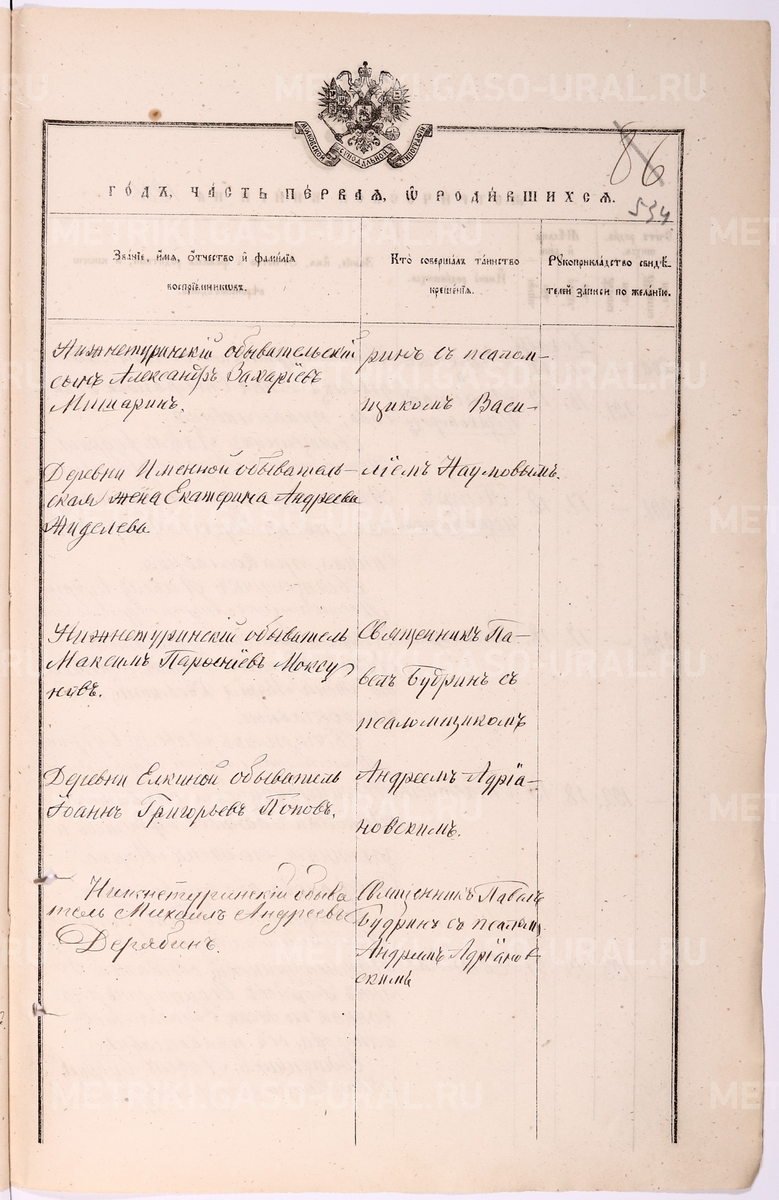 86
534
МОСКОВСКОЙ СѴНОДАЛЬНОЙ ТИПОГРАФІИ
ГО́ДЪ, ЧА́СТЬ ПЕ́РВАѦ, Ѡ҆ РОДИ́ВШИХСѦ.
Зва́нїе, и҆́мѧ, ѻ҆́тчество и҆ фами́лїѧ
воспрїе́мникѡвъ.
Кто̀ соверша́лъ та́инство
креще́нїѧ.
Рꙋкоприкла́дство свидѣ́-
телей за́писи по жела́нїю.
Нижнетуринскій обывательскій
сынъ Александръ Захаріевъ
Мишаринъ.
ринъ съ псалом-
щикомъ Васи-
Деревни Именной обыватель-
ская жена Екатерина Андреева
Жиделева
ліемъ Наумовымъ.
Нижнетуринскій обыватель
Максимъ
Священникъ Па-
велъ Будринъ съ
псаломщикомъ
Деревни Елкиной обыватель
Іоаннъ Григорьевъ Поповъ.
Андреемъ Адріа-
новскимъ.
Нижнетуринскій обыва
тель Михаилъ Андреевъ
Дерябинъ.
Священникъ Павелъ
Будринъ съ псалом
Андреемъ Адріанов
скимъ
METRIKI.GASO-URAL.RU